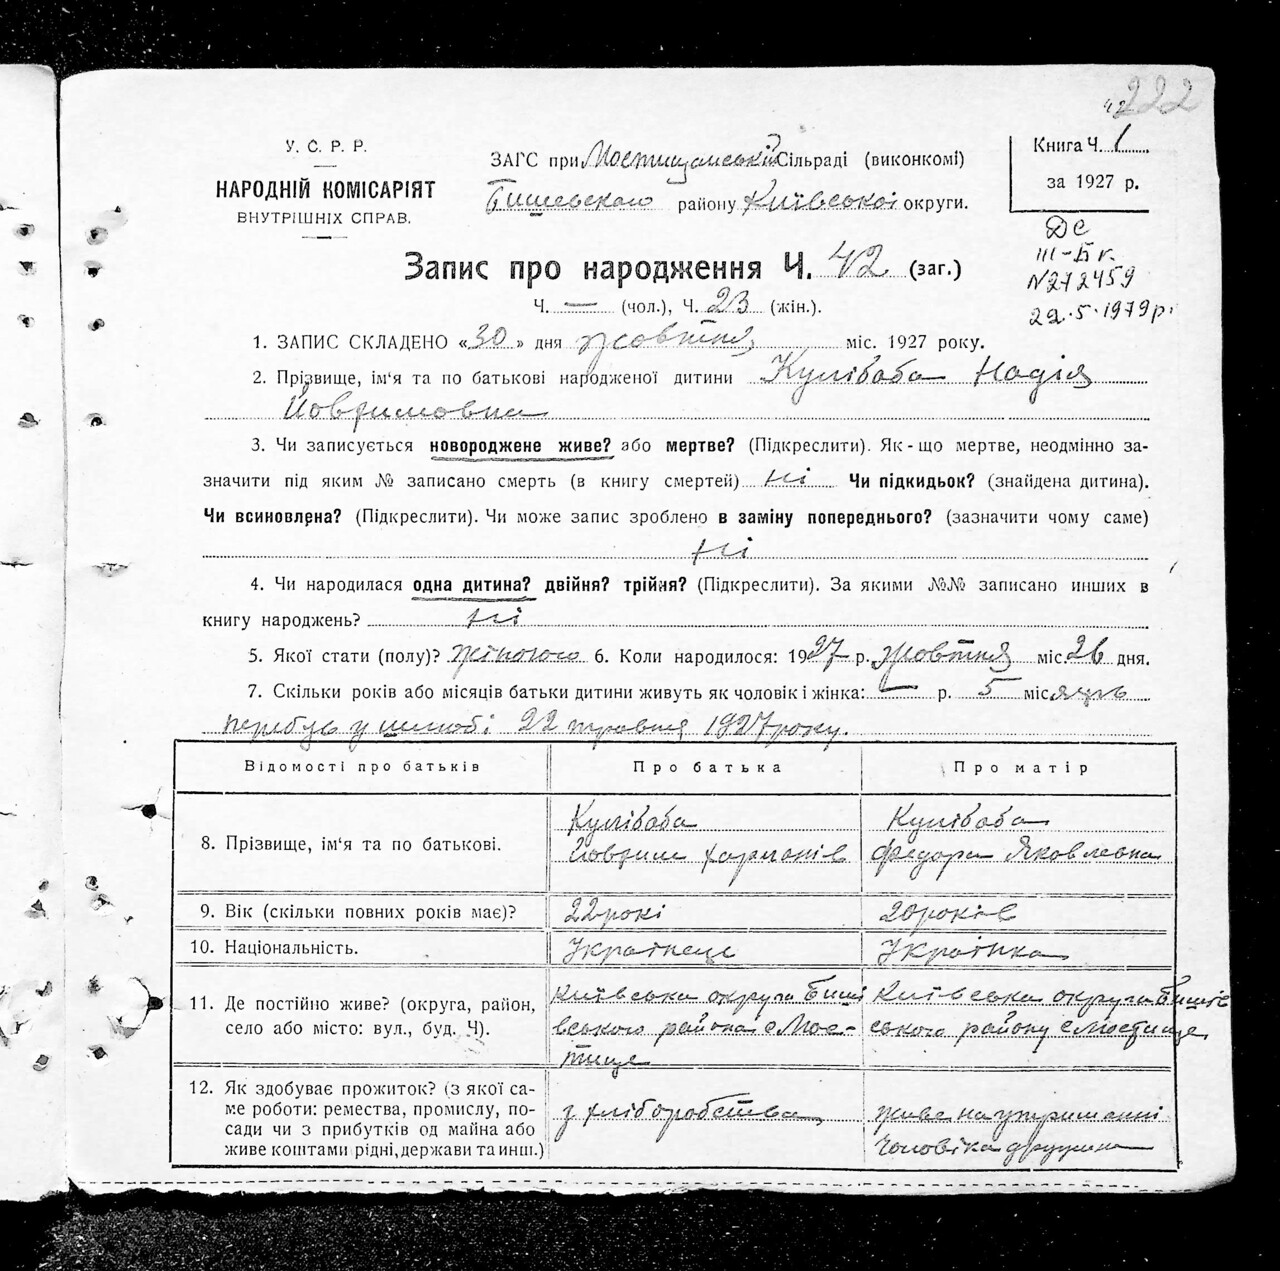 222
42
У. С. Р. Р.
НАРОДНІЙ КОМІСАРІЯТ
ВНУТРІШНІХ СПРАВ.
ЗАГС при Мостищанській Сільраді (виконкомі)
Бишевского району Київської округи.
Книга Ч. 1
за 1927 р.
ІІІ-БК
N272459
22.5.1979р.
Запис про народження Ч. 42 (заг.)
Ч. — (чол.), Ч. 23 (жін.).
1. ЗАПИС СКЛАДЕНО «30» дня жовтня міс. 1927 року.
2. Прізвище, ім'я та по батькові народженої дитини Кулібаба Надія
Йовхимовна
3. Чи записується новороджене живе? або мертве? (Підкреслити). Як-що мертве, неодмінно за-
значити під яким № записано смерть (в книгу смертей) ні Чи підкидьок? (знайдена дитина).
Чи всиновлена? (Підкреслити). Чи може запис зроблено в заміну попереднього? (зазначити чому саме)
ні
4. Чи народилася одна дитина? двійня? трійня? (Підкреслити). За якими №№ записано инших в
книгу народжень? ні
5. Якої стати (полу)? жіночого 6. Коли народилося: 1927 р. жовтня міс. 26 дня.
7. Скільки років або місяців батьки дитини живуть як чоловік і жінка: — р. 5 місяців
перебув у шлюбі 22 травня 1927 року.
Відомості про батьків Про батька Про матір
8. Прізвище, ім'я та по батькові.
Кулібаба
Йовхим
Кулібаба
Федора Яковлевна
9. Вік (скільки повних років має)? 22 рокі 20 років
10. Національність. Українець Українка
11. Де постійно живе? (округа, район,
село або місто: вул., буд. Ч).
Київська округа Биші
вського района с Мос-
тище
Київська округа Бишів
ського району с Мостище
12. Як здобуває прожиток? (з якої са-
ме роботи: ремества, промислу, по-
сади чи з прибутків од майна або
живе коштами рідні, держави та инш.)
з хліборобства
живе на утриманні
чоловіка дружина